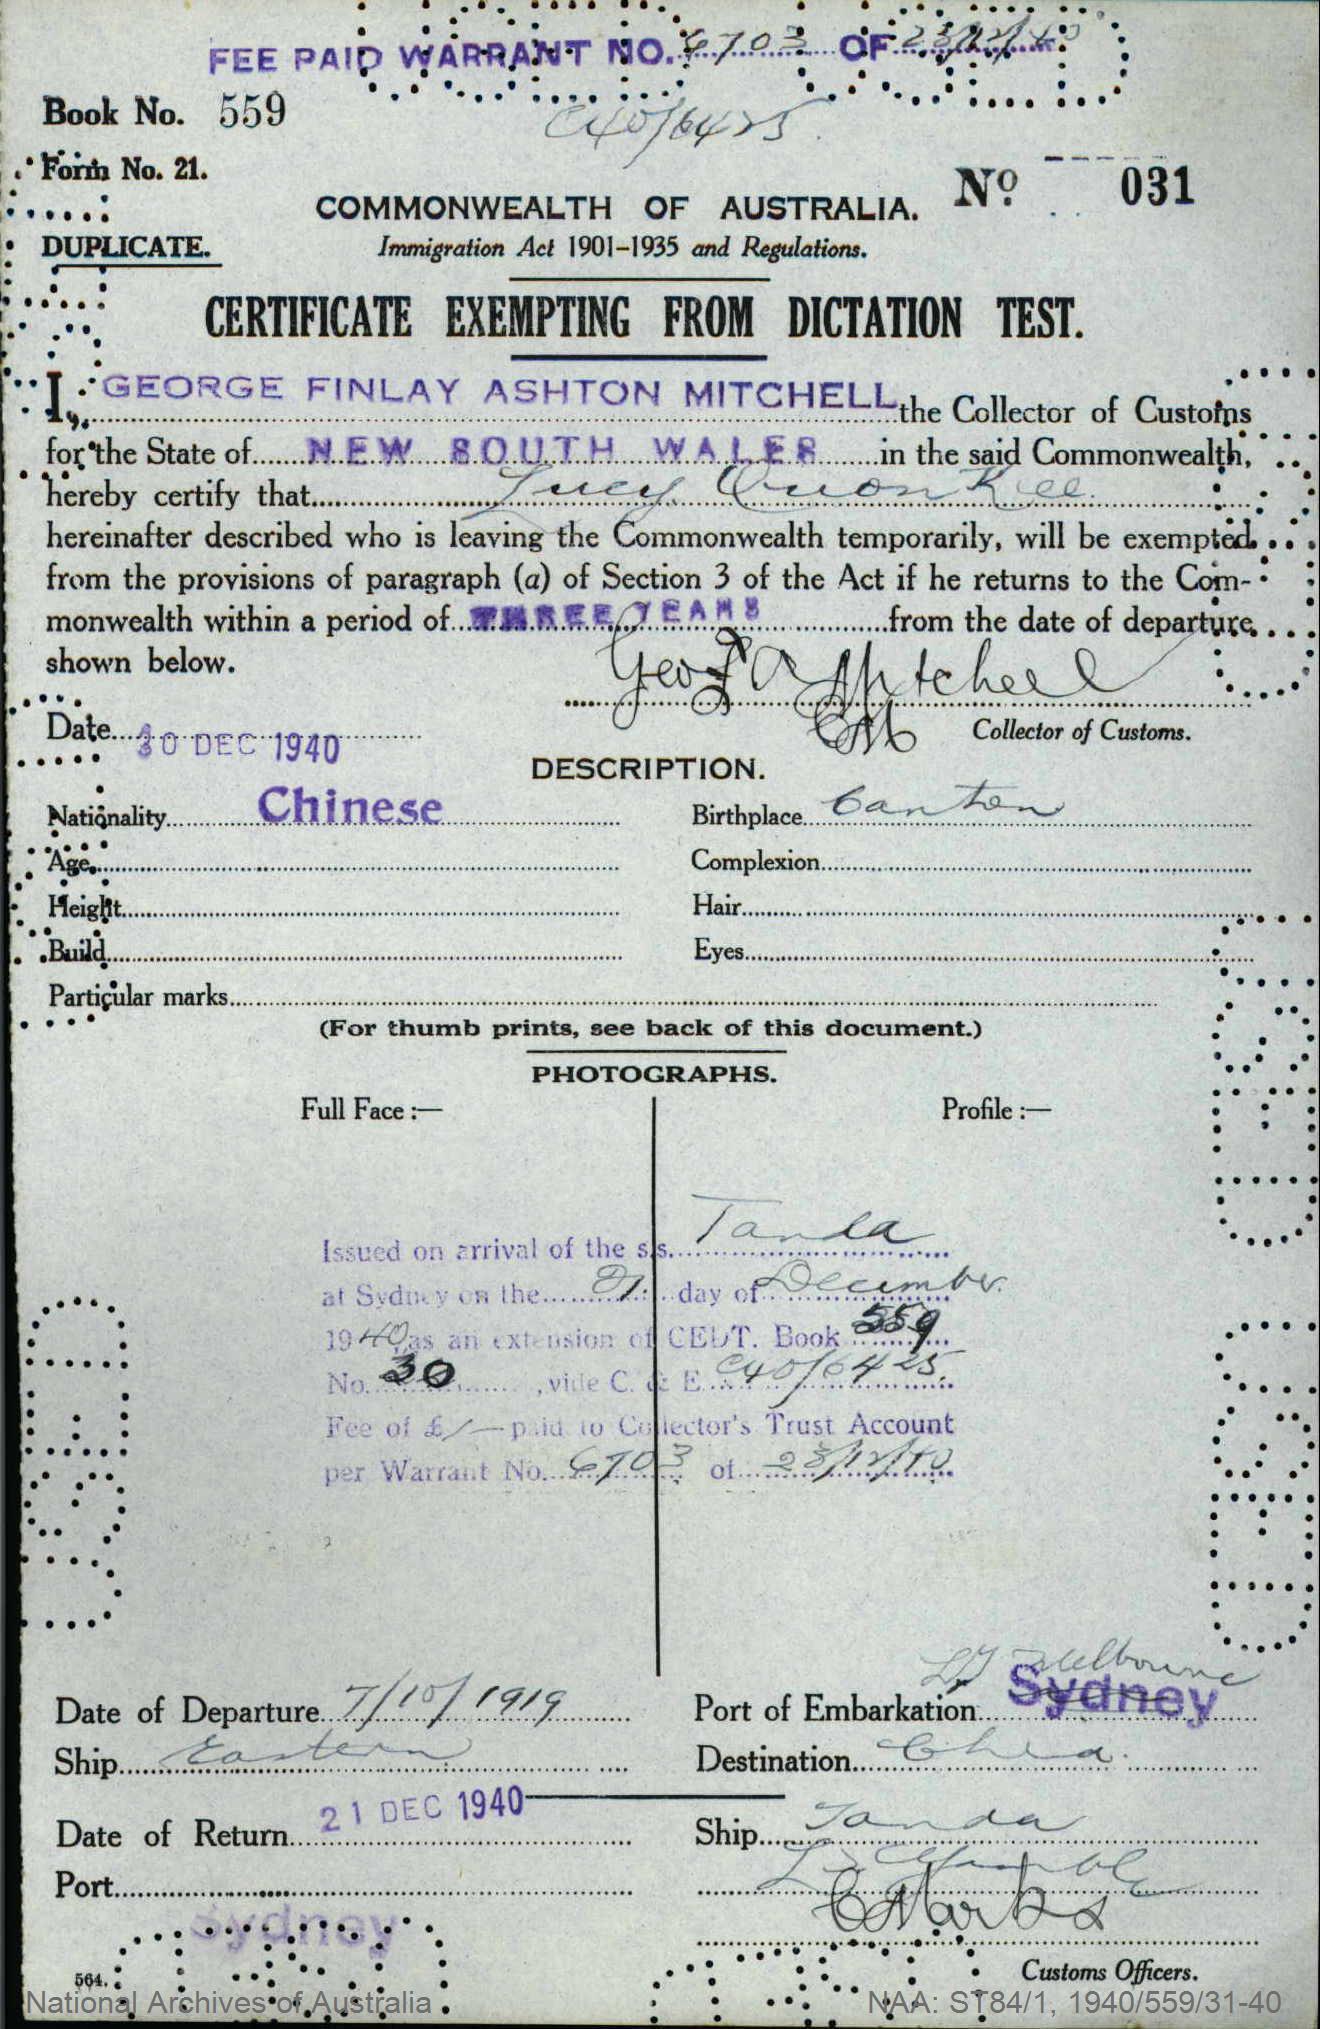 FEE PAID WARRANT NO. 6703 OF 23/12/40
C40/6425.
Book No. 559
Form No. 21.
Nº 031
COMMONWEALTH OF AUSTRALIA.
DUPLICATE.
Immigration Act 1901-1935 and Regulations.
CERTIFICATE EXEMPTING FROM DICTATION TEST.
I, GEORGE FINLAY ASHTON MITCHELL the Collector of Customs
for the State of NEW SOUTH WALES in the said Commonwealth,
hereby certify that Lucy Quon Kee.
hereinafter described who is leaving the Commonwealth temporarily, will be exempted
from the provisions of paragraph (a) of Section 3 of the Act if he returns to the Com-
monwealth within a period of THREE YEARS from the date of departure
shown below.
Geo F A Mitchell
Date 30 DEC 1940
Collector of Customs.
DESCRIPTION.
Nationality Chinese
Birthplace Canton
Age
Complexion
Height
Hair
Build
Eyes
Particular marks
(For thumb prints, see back of this document.)
PHOTOGRAPHS.
Full Face :—
Profile :—
Issued on arrival of the s.s. Tanda
at Sydney on the 21. day of December.
1940, as an extension of CEDT. Book 559
No. 30, vide C. & E. C40/6425.
Fee of £/— paid to Collector's Trust Account
per Warrant No. 6703 of 23/12/40
Melbourne
Date of Departure 7/10/1919
Port of Embarkation Sydney
Ship Eastern
Destination China.
Date of Return 21 DEC 1940
Ship Tanda
Port
Sydney
CMarks
Customs Officers.
564.
National Archives of Australia
NAA: ST84/1, 1940/559/31-40